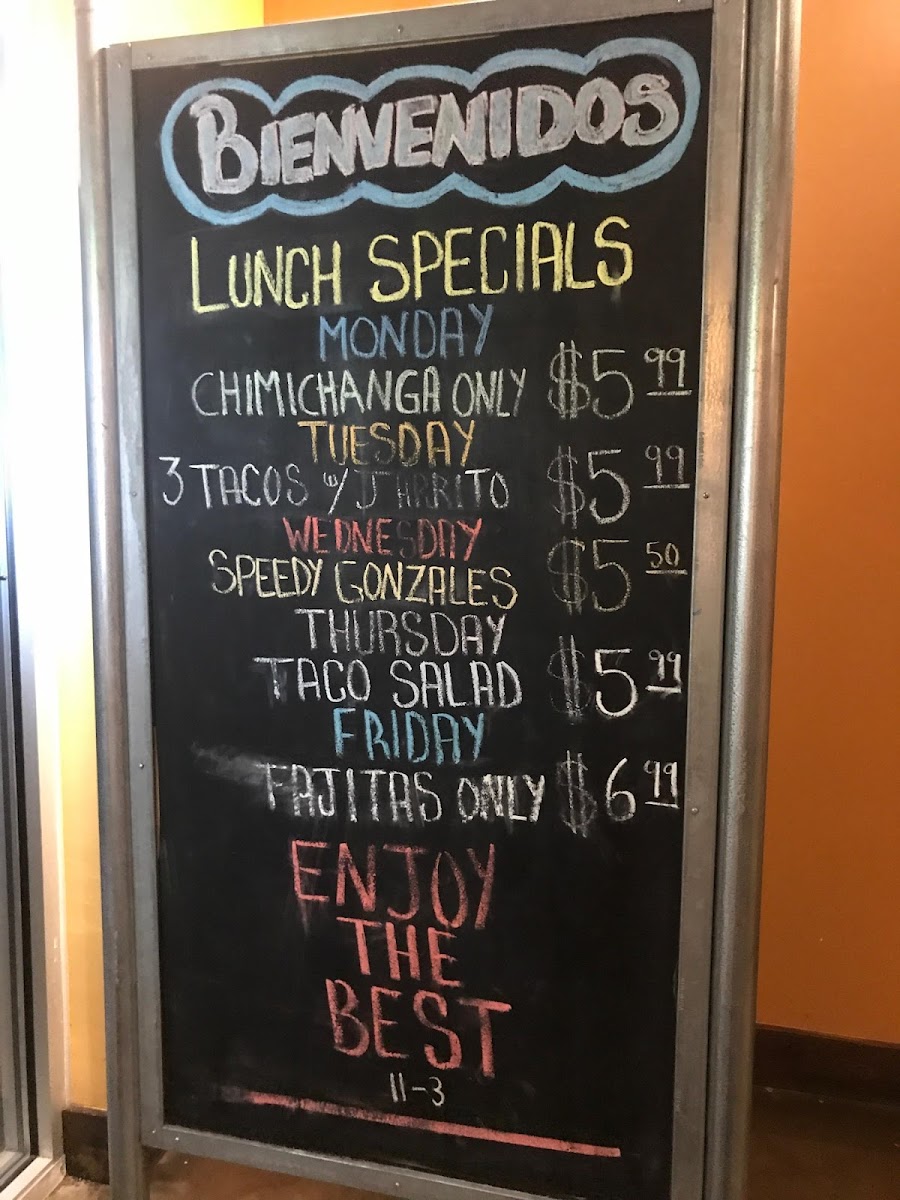 BIENVENIDOS
LUNCH SPECIALS
MONDAY
CHIMICHANGA ONLY $5 99
TUESDAY
3 TACOS W/ JARRITO $5 99
WEDNESDAY
SPEEDY GONZALES $5 50
THURSDAY
TACO SALAD $5 99
FRIDAY
FAJITAS ONLY $6 99
ENJOY
THE
BEST
11-3